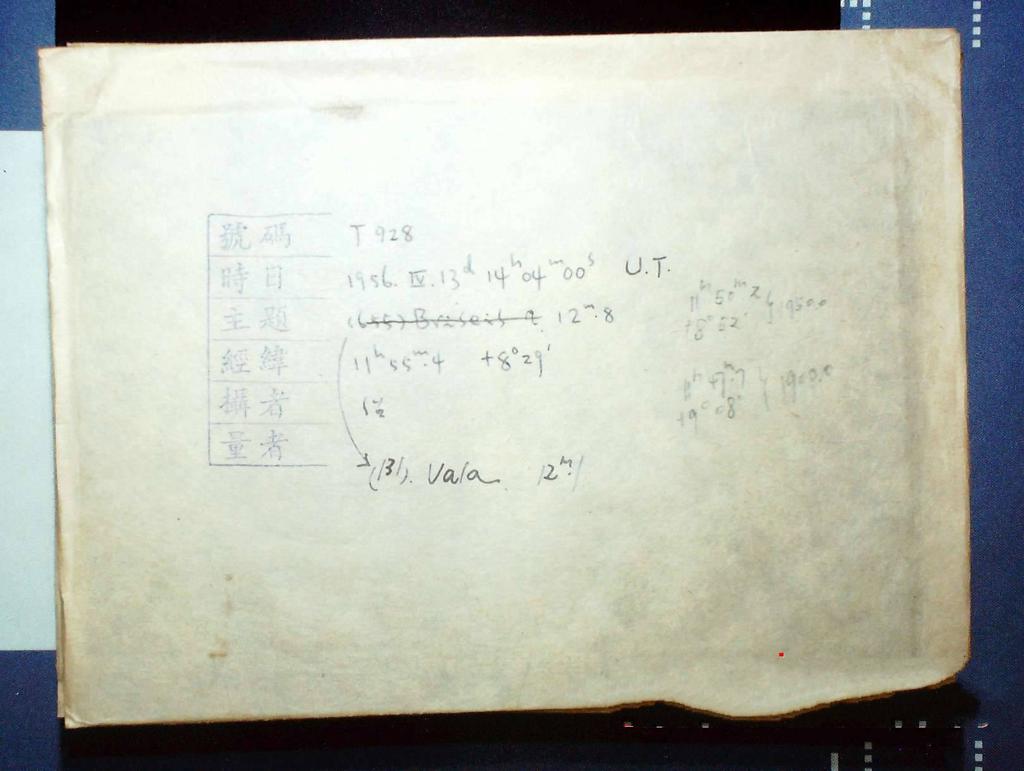 號碼 T 928
時日 1956. IV. 13ᵈ 14ʰ 04ᵐ 00ˢ U.T.
主題 (655) Briseis ? 12ᵐ.8
經緯 11ʰ 55ᵐ.4 +8°29′
攝者
量者
(131). Vala 12ᵐ.1
11ʰ 50ᵐ.2 } 1950.0
+8°52′
11ʰ 47ᵐ.7 } 1900.0
+9°08′